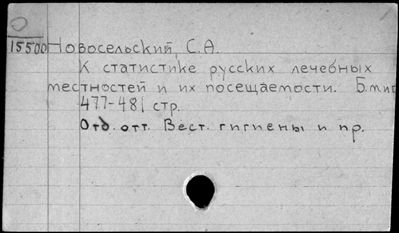 О
15500 Новосельский, С.А.
К статистике русских лечебных
местностей и их посещаемости. Б.м.и г
477-481 стр.
Отд. отт. Вест. гигиены и пр.